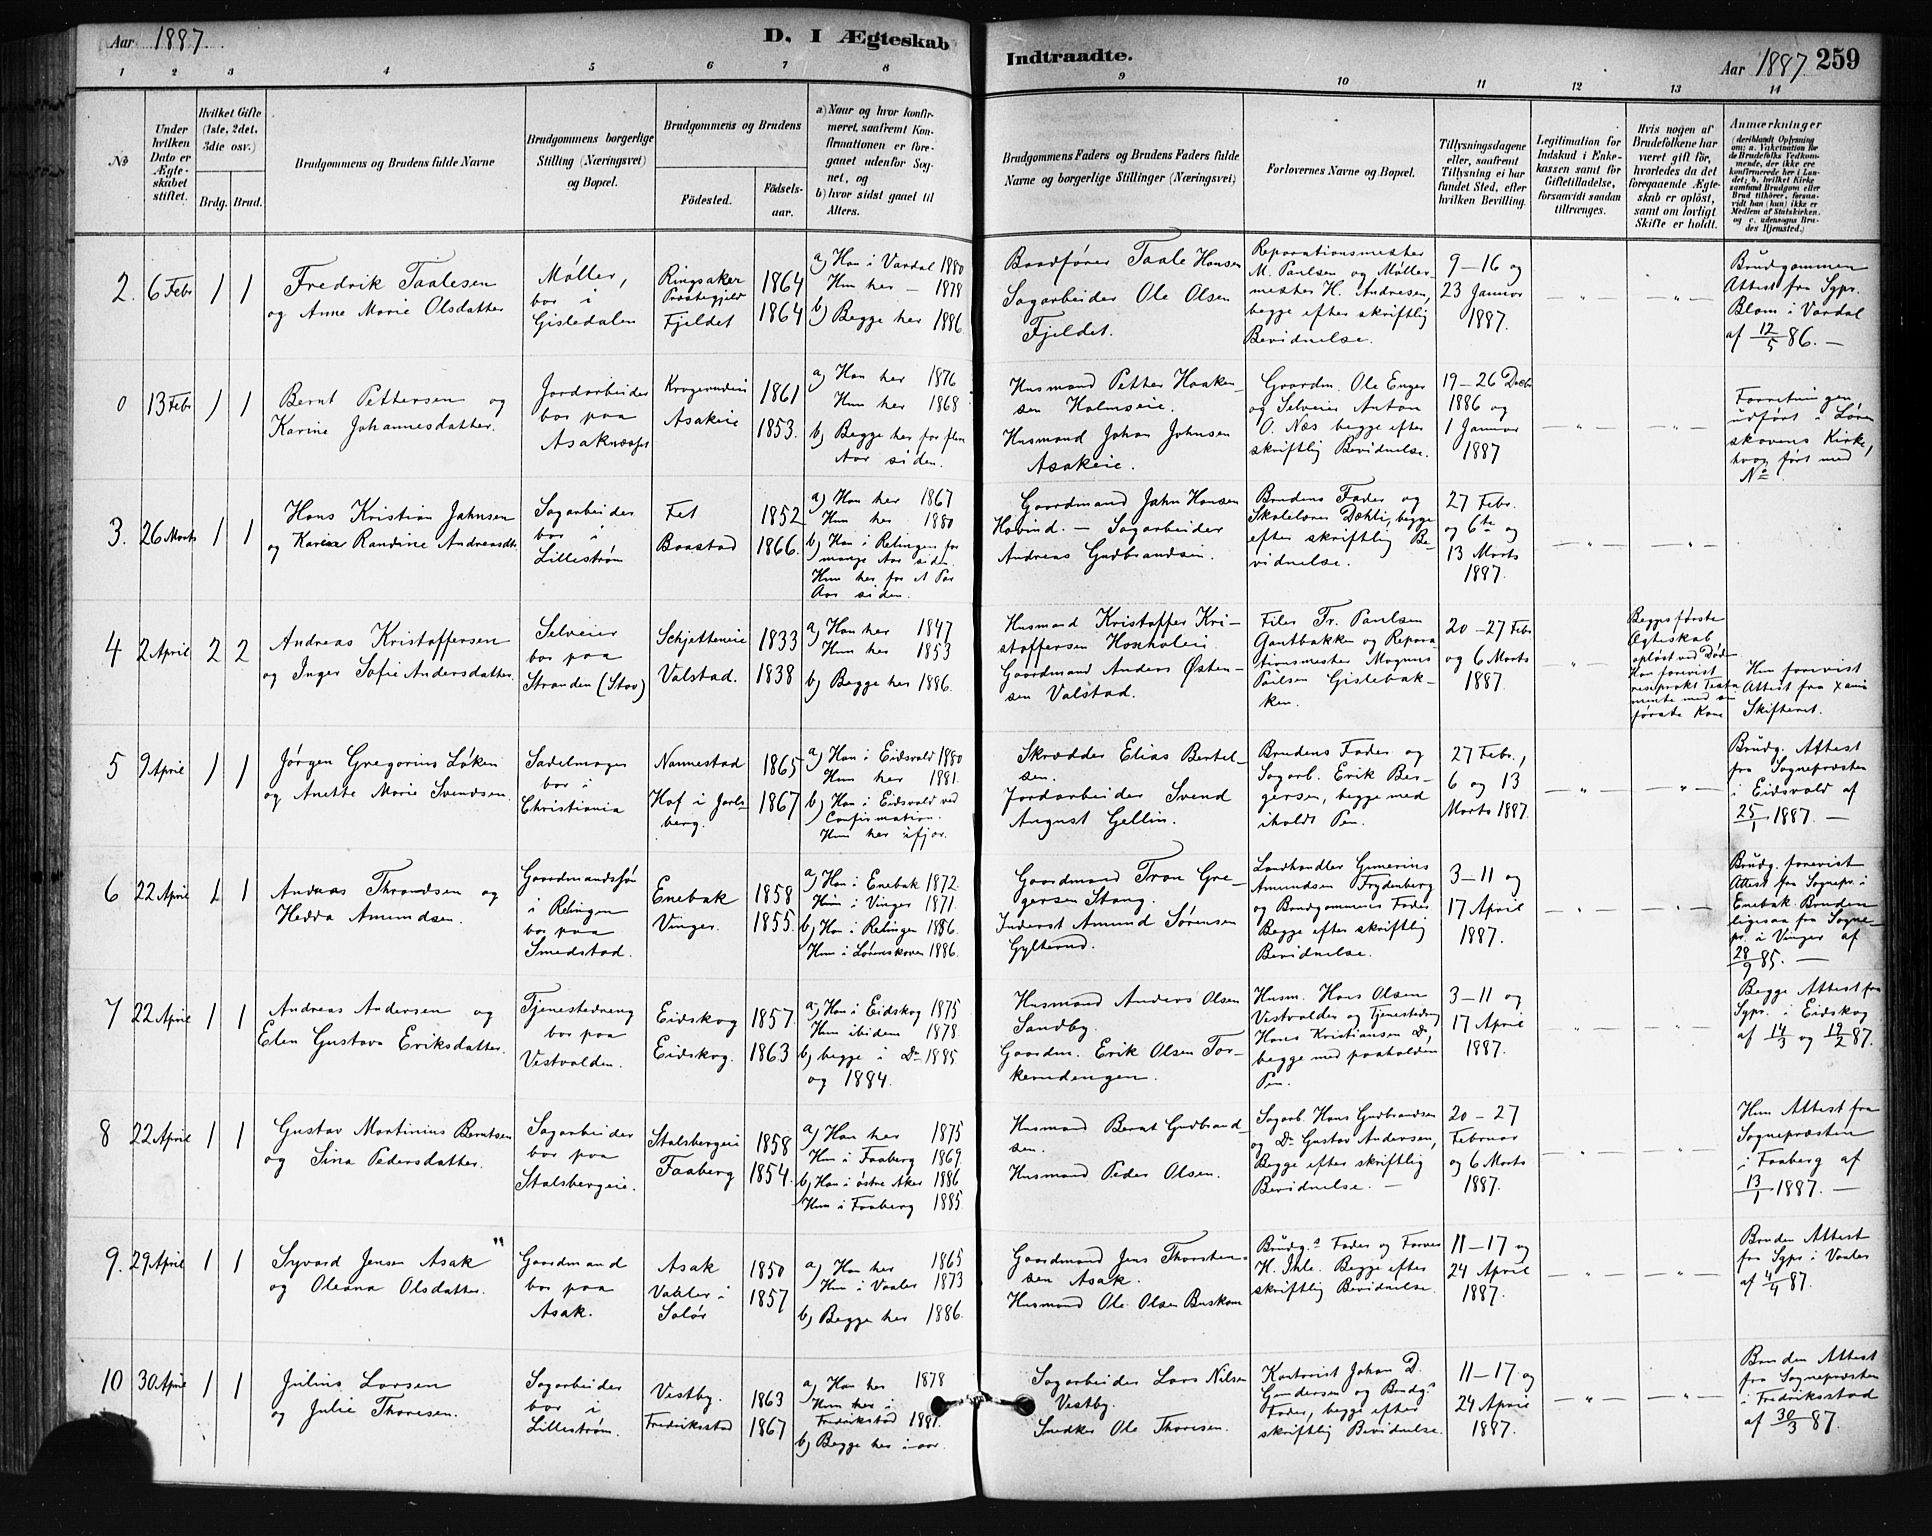 Aar 1887.
D. I Ægteskab
Indtraadte.
Aar 1887
259
1 2 3 4 5 6 7 8
9 10 11 12 13 14
No
Under hvilken Dato er Ægteskabet stiftet.
Hvilket Gifte (1ste, 2det, 3die osv.)
Brdg.
Brud.
Brudgommens og Brudens fulde Navne
Brudgommens borgerlige Stilling (Næringsvei) og Bopæl.
Brudgommens og Brudens
Födested.
Födselsaar.
a) Naar og hvor konfirmeret, saafremt Konfirmationen er foregaaet udenfor Sognet, og
b) hvor sidst gaaet til Alters.
Brudgommens Faders og Brudens Faders fulde Navne og borgerlige Stillinger (Næringsvei)
Forlovernes Navne og Bopæl.
Tillysningsdagene eller, saafremt Tillysning ei har fundet Sted, efter hvilken Bevilling.
Legitimation for Indskud i Enkekassen samt for Giftetilladelse, forsaavidt saadan tiltrænges.
Hvis nogen af Brudefolkene har været gift før, hvorledes da det foregaaende Ægteskab er oplöst, samt om lovligt Skifte er holdt.
Anmærkninger
(deriblandt Oplysning om: a. Vakcination for de Brudefolks Vedkommende, der ikke ere konfirmerede her i Landet; b. hvilket Kirkesamfund Brudgom eller Brud tilhörer, forsaavidt han (hun) ikke er Medlem af Statskirken, og c. udensogns Brudes Hjemsted.)
2. 6 Febr 1 1
Fredrik Taalesen
og Anne Marie Olsdatter
Møller,
bor i
Gistedalen
Ringsaker
Præstegjeld 1864
Fjeldet 1864
a) Han i Vardal 1880
Hun her – 1878
b) Begge her 1886.
Baadfører Taale Hansen
Sagarbeider Ole Olsen
Fjeldet.
Reparationsmester
M. Paulsen og Møller-
mester H. Andresen,
begge efter skriftlig
Bevidnelse.
9–16 og
23 Januar
1887.
Brudgommen
Attest fra Sgpr.
Blom i Vardal
af 12/5 86. –
0 13 Febr 1 1
Bernt Pettersen og
Karine Johannesdatter.
Jordarbeider
bor paa
Asaknæsset
Krogerudeie 1861
Asakeie 1853.
a) Han her 1876
Hun her 1868
b) Begge her for flere
Aar siden.
Husmand Petter Haaken-
sen Holmseie.
Husmand Johan Johnsen
Asakeie.
Gaardm. Ole Enger
og Selveier Anton
O. Næs begge efter
skriftlig Bevidnelse.
19–26 Decbr
1886 og
1 Januar
1887
Forretningen
udført i Løren
skovens Kirke,
hvor ført med
No
3. 26 Marts 1 1
Hans Kristian Jahnsen
og Karen Randine Andreasdtr.
Sagarbeider
bor i
Lillestrøm
Fet 1852
Baastad 1866.
a) Han her 1867
Hun her 1880
b) Han i Relingen for
mange Aar siden.
Hun her for et Par
Aar siden.
Gaardmand Jahn Hansen
Hovind. – Sagarbeider
Andreas Gudbrandsen.
Brudens Fader og
Skolelærer Dæhli, begge
efter skriftlig Be-
vidnelse.
27 Febr.
og 6te og
13 Marts
1887.
4 2 April 2 2
Andreas Kristoffersen
og Inger Sofie Andersdatter.
Selveier
bor paa
Stranden (Stav)
Schjetteneie 1833
Valstad. 1838
a) Han her 1847
Hun her 1853
b) Begge her 1886.
Husmand Kristoffer Kri-
stoffersen Honholeie
Gaardmand Anders Østen-
sen Valstad.
Filer Fr. Paulsen
Gautbakken og Repara
tionsmester Magnus
Paulsen Gistebak-
ken.
20–27 Febr
og 6 Marts
1887.
Begges første
Ægteskab
opløst ved Døden
Han forevist
resiprokt Testa-
mente med sin
første Kone
Hun forevist
Attest fra Xania
Skifteret.
5 9 April 1 1
Jørgen Gregorius Løken
og Anette Marie Svendsen.
Sadelmager
bor i
Christiania
Nannestad 1865
Hof i Jarls-
berg. 1867
a) Han i Eidsvold 1880
Hun her 1881.
b) Han i Eidsvold ved
Confirmation.
Hun her ifjor.
Skrædder Elias Bertel-
sen.
Jordarbeider Svend
August Gellin.
Brudens Fader og
Sagarb. Erik Ber-
gersen, begge med
iholdt Pen.
27 Febr.,
6 og 13
Marts 1887.
Brudg. Attest
fra Sognepræsten
i Eidsvold af
25/1 1887. –
6 22 April 1 1
Andreas Throndsen og
Hedda Amundsen.
Gaardmandssøn
i Relingen
bor paa
Smedstad.
Enebak 1858
Vinger. 1855.
a) Han i Enebak 1872.
Hun i Vinger 1871.
b) Han i Relingen 1886.
Hun i Lørenskoven 1886.
Gaardmand Tron Gre-
gersen Stang.
Inderst Amund Sørensen
Gylterud.
Landhandler Gunerius
Amundsen Frydenberg
og Brudgommens Fader
Begge efter skriftlig
Bevidnelse.
3–11 og
17 April
1887.
Brudg. forevist
Attest fra Sognepr. i
Enebak. Bruden
ligesaa fra Sogne-
pr. i Vinger af
28/9 85. –
7 22 April 1 1
Andreas Andersen og
Elen Gustava Eriksdatter.
Tjenestedreng
bor paa
Vestvolden.
Eidskog 1857.
Eidskog. 1863
a) Han i Eidskog 1875
Hun ibidem 1878.
b) begge i Do 1885
og 1884.
Husmand Anders Olsen
Sandby.
Gaardm. Erik Olsen Tor-
kerudengen.
Husm. Hans Olsen
Vestvolden og Tjenestedreng
Hans Kristiansen Do,
begge med paaholden
Pen.
3–11 og
17 April
1887.
Begge Attest fra
Sgpr. i Eidskog
af 14/3 og 12/2 87.
8 22 April 1 1
Gustav Martinius Berntsen
og Sina Pedersdatter.
Sagarbeider
bor paa
Stalsbergeie.
Stalsbergeie 1858
Faaberg 1854.
a) Han her 1875
Hun i Faaberg 1869
b) Han i østre Aker 1886
Hun i Faaberg 1885.
Husmand Bernt Gudbrand-
sen.
Husmand Peder Olsen.
Sagarb. Hans Gudbrandsen
og Do Gustav Andersen,
Begge efter skriftlig
Bevidnelse. –
20–27
Februar
og 6 Marts
1887.
Hun Attest fra
Sognepræsten
i Faaberg af
13/1 1887. –
9. 29 April 1 1
Syvard Jensen Asak
og Oleana Olsdatter.
Gaardmand
bor paa
Asak.
Asak 1850
Vaaler i 1857
Solør
a) Han her 1865
Hun i Vaaler 1873
b) Begge her 1886.
Gaardmand Jens Thorsten-
sen Asak.
Husmand Ole Olsen Buskom
Brudg.s Fader og Farver
H. Ihle. Begge efter
skriftlig Bevidnelse.
11–17 og
24 April
1887.
Bruden Attest
fra Sgpr. i Vaaler
af 4/4 87.
10 30 April 1 1
Julius Larsen
og Julie Thoresen.
Sagarbeider
bor i
Lillestrøm.
Vestby. 1863
Fredriksstad 1867
a) Han her 1878
Hun her i
Fredriksstad 1881.
b) Begge her i aar.
Sagarbeider Lars Nilsen
Vestby.
Snedker Ole Thoresen.
Kontorist Johan D.
Gundersen og Brudg.s
Fader, begge efter
skriftlig Bevidnelse.
11–17 og
24 April
1887.
Bruden Attest
fra Sognepræsten
i Fredriksstad
af 30/3 87.